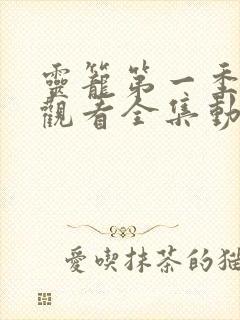 靈籠第一季
觀看全集動
愛喫抹茶的貓